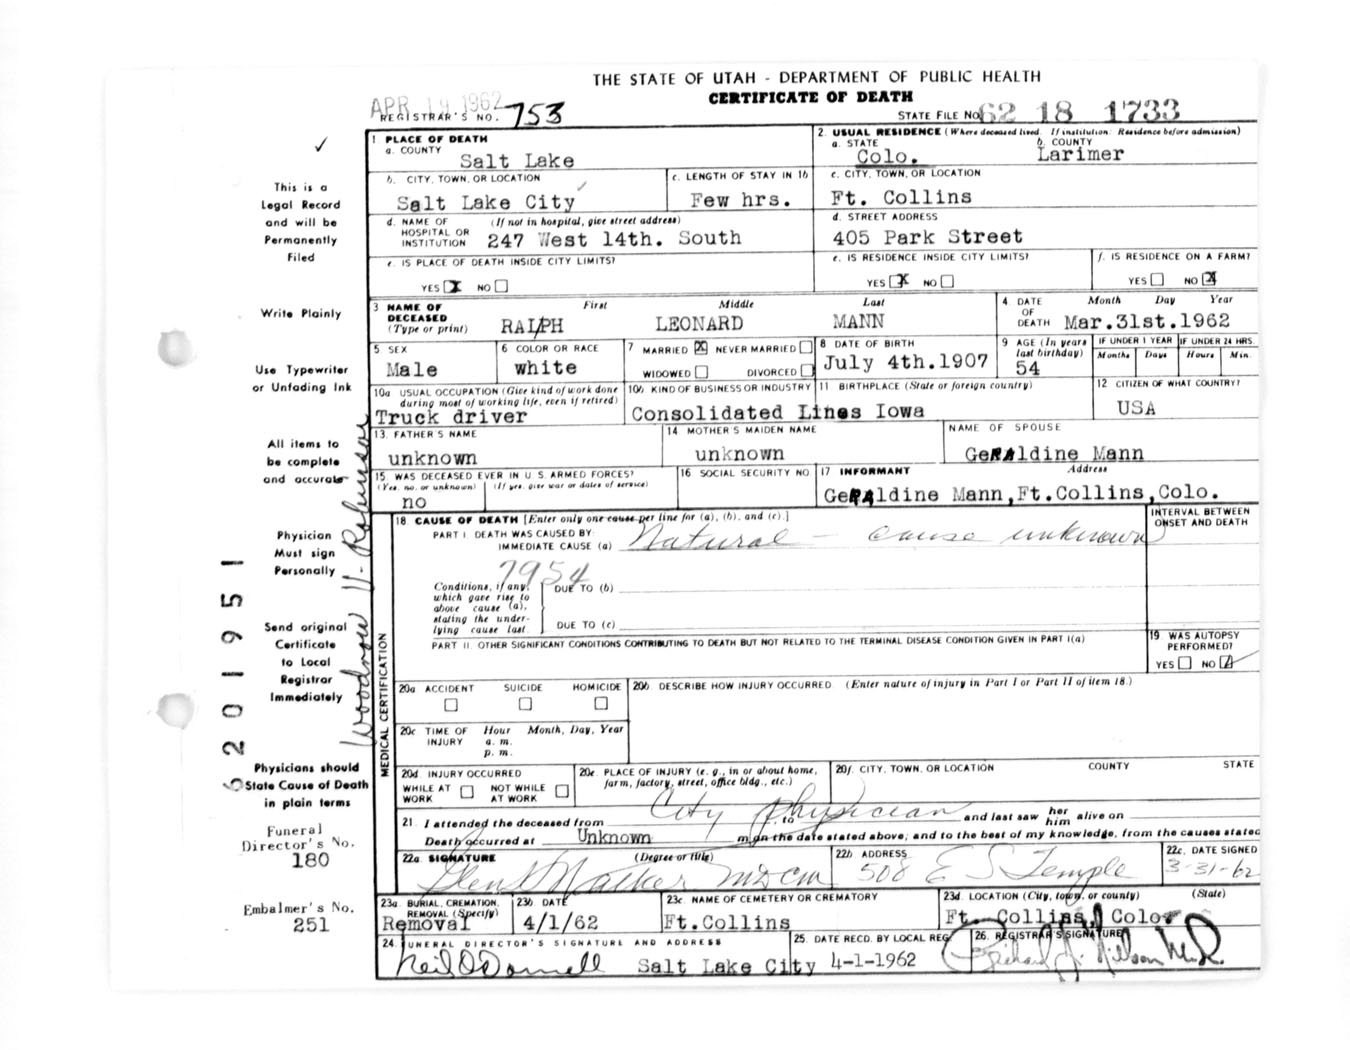 THE STATE OF UTAH - DEPARTMENT OF PUBLIC HEALTH
CERTIFICATE OF DEATH
APR 19 1962
REGISTRAR'S NO. 753
STATE FILE NO. 62 18 1733
✓
This is a
Legal Record
and will be
Permanently
Filed
Write Plainly
Use Typewriter
or Unfading Ink
All items to
be complete
and accurate
Physician
Must sign
Personally
Send original
Certificate
to Local
Registrar
Immediately
Physicians should
State Cause of Death
in plain terms
Funeral
Director's No.
180
Embalmer's No.
251
5 20 1951
Woodrow H. Robinson
1 PLACE OF DEATH
a. COUNTY Salt Lake
2. USUAL RESIDENCE (Where deceased lived. If institution: Residence before admission)
a. STATE Colo. b. COUNTY Larimer
b. CITY, TOWN, OR LOCATION Salt Lake City
c. LENGTH OF STAY IN 1b Few hrs.
c. CITY, TOWN, OR LOCATION Ft. Collins
d. NAME OF HOSPITAL OR INSTITUTION (If not in hospital, give street address) 247 West 14th. South
d. STREET ADDRESS 405 Park Street
e. IS PLACE OF DEATH INSIDE CITY LIMITS? YES X NO
e. IS RESIDENCE INSIDE CITY LIMITS? YES X NO
f. IS RESIDENCE ON A FARM? YES NO X
3 NAME OF DECEASED (Type or print) First Middle Last
RALPH LEONARD MANN
4. DATE OF DEATH Month Day Year
Mar.31st.1962
5 SEX Male
6 COLOR OR RACE white
7 MARRIED X NEVER MARRIED WIDOWED DIVORCED
8 DATE OF BIRTH July 4th.1907
9 AGE (In years last birthday) 54
IF UNDER 1 YEAR Months Days
IF UNDER 24 HRS. Hours Min.
10a USUAL OCCUPATION (Give kind of work done during most of working life, even if retired) Truck driver
10b KIND OF BUSINESS OR INDUSTRY Consolidated Lines
11 BIRTHPLACE (State or foreign country) Iowa
12 CITIZEN OF WHAT COUNTRY? USA
13. FATHER'S NAME unknown
14 MOTHER'S MAIDEN NAME unknown
NAME OF SPOUSE GeRAldine Mann
15 WAS DECEASED EVER IN U.S. ARMED FORCES?
(Yes, no, or unknown) (If yes, give war or dates of service)
no
16 SOCIAL SECURITY NO
17 INFORMANT Address
GeRAldine Mann,Ft.Collins,Colo.
MEDICAL CERTIFICATION
18 CAUSE OF DEATH [Enter only one cause per line for (a), (b), and (c).]
INTERVAL BETWEEN ONSET AND DEATH
PART I. DEATH WAS CAUSED BY:
IMMEDIATE CAUSE (a) Natural - cause unknown
7954
Conditions, if any, which gave rise to above cause (a), stating the underlying cause last.
DUE TO (b)
DUE TO (c)
PART II. OTHER SIGNIFICANT CONDITIONS CONTRIBUTING TO DEATH BUT NOT RELATED TO THE TERMINAL DISEASE CONDITION GIVEN IN PART I(a)
19 WAS AUTOPSY PERFORMED? YES NO
20a ACCIDENT SUICIDE HOMICIDE
20b. DESCRIBE HOW INJURY OCCURRED. (Enter nature of injury in Part I or Part II of item 18.)
20c TIME OF INJURY Hour Month, Day, Year
a. m.
p. m.
20d. INJURY OCCURRED
WHILE AT WORK NOT WHILE AT WORK
20e. PLACE OF INJURY (e. g., in or about home, farm, factory, street, office bldg., etc.)
20f. CITY, TOWN, OR LOCATION COUNTY STATE
City physician
21. I attended the deceased from to and last saw her him alive on
Death occurred at Unknown m on the date stated above; and to the best of my knowledge, from the causes stated
22a. SIGNATURE (Degree or title) Walker MDCM
22b ADDRESS 508 E S Temple
22c. DATE SIGNED 3-31-62
23a. BURIAL, CREMATION, REMOVAL (Specify) Removal
23b. DATE 4/1/62
23c. NAME OF CEMETERY OR CREMATORY Ft.Collins
23d. LOCATION (City, town, or county) (State) Ft. Collins Color
24. FUNERAL DIRECTOR'S SIGNATURE AND ADDRESS
Neil O'Donnell Salt Lake City
25. DATE RECD. BY LOCAL REG. 4-1-1962
26. REGISTRAR'S SIGNATURE